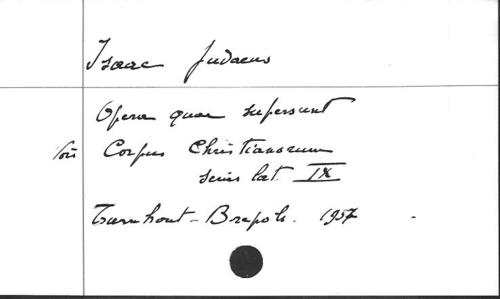 Isaac Judaeus
Opera quae supersunt
Voir Corpus Christianorum
series lat. IX
Turnhout - Brepols. 1957